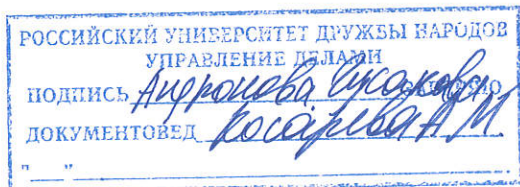 РОССИЙСКИЙ УНИВЕРСИТЕТ ДРУЖБЫ НАРОДОВ
УПРАВЛЕНИЕ ДЕЛАМИ
ПОДПИСЬ Андронова
ДОКУМЕНТОВЕД Косарева А.М.
" "